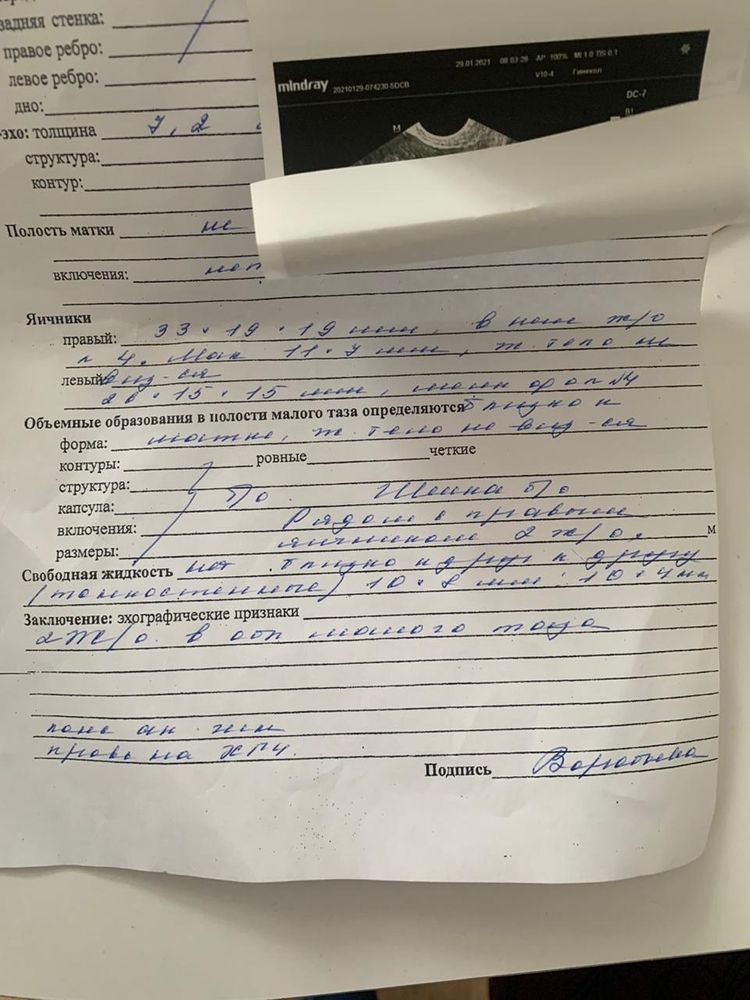 задняя стенка:
правое ребро:
левое ребро:
дно:
-эхо: толщина 7,2
структура:
контур:
mindray 20210129-074230-5DCB
29.01.2021 08:03:28 AP 100% MI 1.0 TIS 0.1
V10-4 Гинекол
DC-7
B1
M
Полость матки не
включения: нет
Яичники
правый: 33 × 19 × 19 мм, в нем ж/о
4. Мак 11 × 7 мм, ж. тело не
левый: виз-ся
26 × 15 × 15 мм,
Объемные образования в полости малого таза определяются близко к
форма: матке, ж. тело не виз-ся
контуры: ровные четкие
структура:
капсула: б/о Шейка б/о
включения: Рядом с правым
размеры: яичником 2 ж/о, м
Свободная жидкость нет близко друг к другу
(тонкостенные) 10 × 8 мм 10 × 4 мм
Заключение: эхографические признаки
2 ж/о в обл малого таза
ан
на ХГЧ.
Подпись